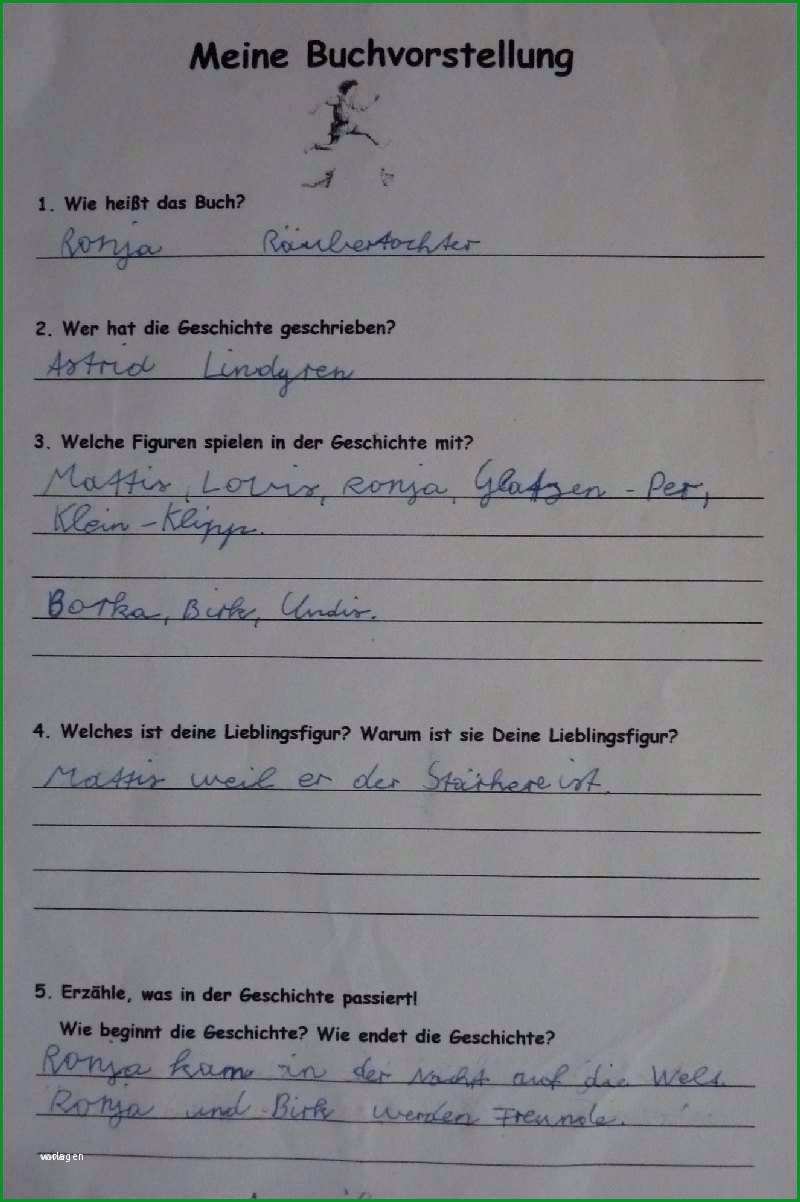 Meine Buchvorstellung
1. Wie heißt das Buch?
Ronja Räubertochter
2. Wer hat die Geschichte geschrieben?
Astrid Lindgren
3. Welche Figuren spielen in der Geschichte mit?
Mattis, Lovis, Ronja, Glatzen-Per,
Klein-Klipp.
Borka, Birk, Undis.
4. Welches ist deine Lieblingsfigur? Warum ist sie Deine Lieblingsfigur?
Mattis weil er der Stärkere ist.
5. Erzähle, was in der Geschichte passiert!
Wie beginnt die Geschichte? Wie endet die Geschichte?
Ronja kam in der Nacht auf die Welt.
Ronja und Birk werden Freunde.